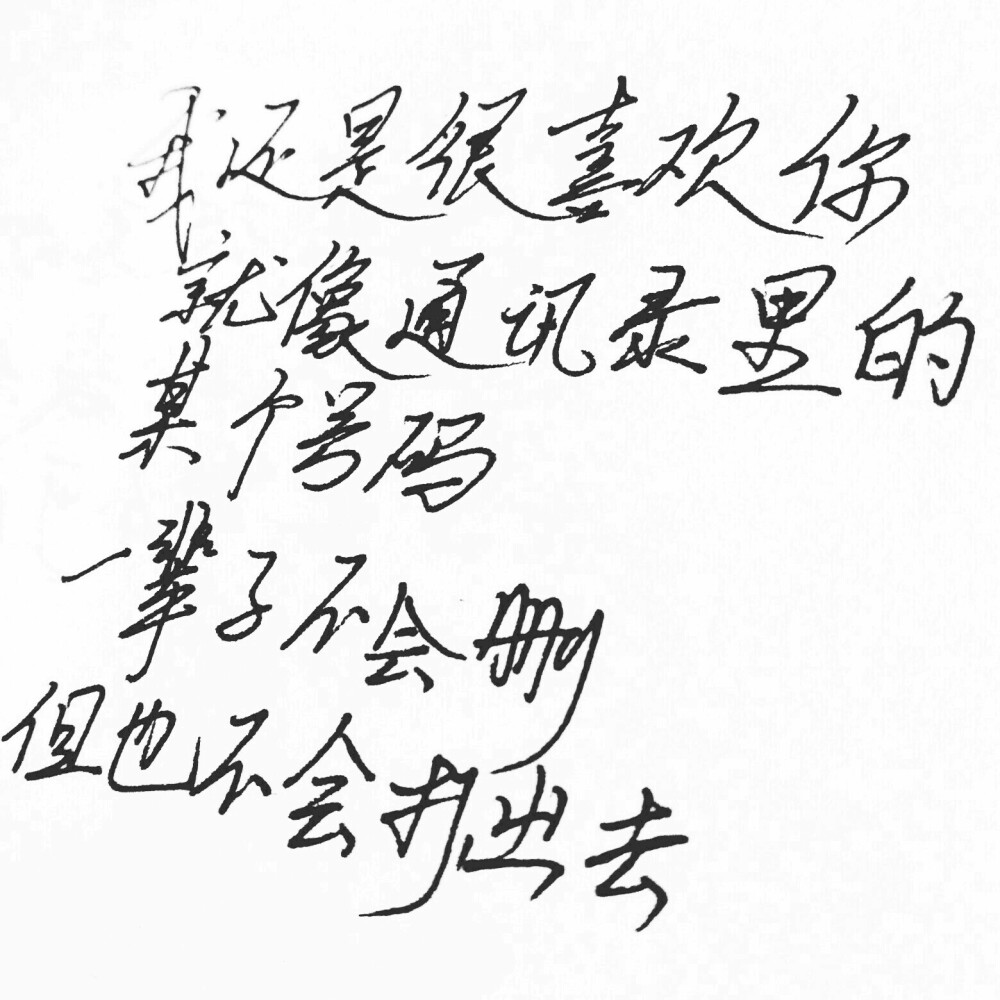 我还是很喜欢你
就像通讯录里的
某个号码
一辈子不会删
但也不会打出去